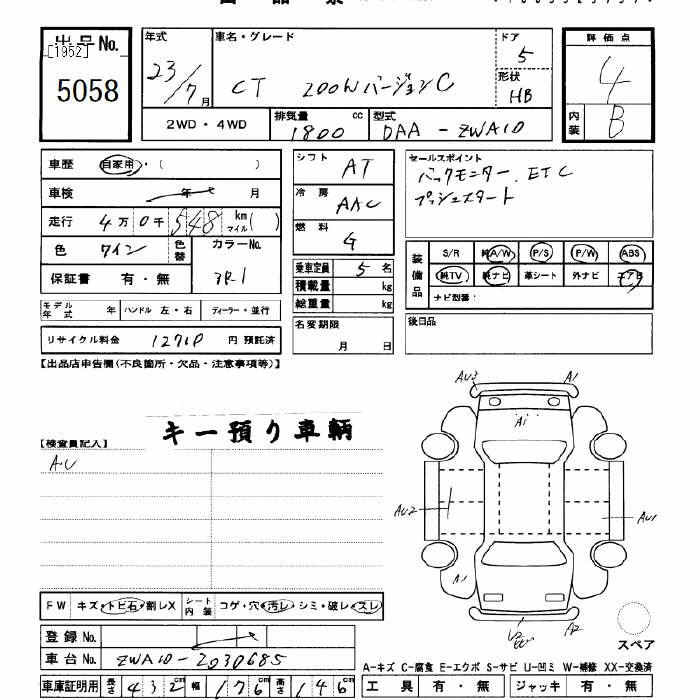 出品No.
[1952]
5058
年式
23/7月
車名・グレード
CT 200h バージョンC
ドア
5
形状
HB
評価点
4
内装
B
2WD・4WD
排気量 cc
1800
型式
DAA-ZWA10
車歴 自家用・( )
車検 年 月
走行 4万0千548 km マイル( )
色 ワイン
色替
カラーNo.
3R1
保証書 有・無
モデル年式 年 ハンドル 左・右 ディーラー・並行
リサイクル料金 12710 円 預託済
シフト AT
冷房 AAC
燃料 G
乗車定員 5 名
積載量 kg
総重量 kg
名変期限
月 日
セールスポイント
バックモニター、ETC
プッシュスタート
装備品
S/R 純A/W P/S P/W ABS
純TV 純ナビ 革シート 外ナビ エアB
ナビ型番:
後日品
【出品店申告欄(不良箇所・欠品・注意事項等)】
キー預り車輌
【検査員記入】
AU
AU3 A1
A1
AU2 AU1
A1
A2
スペア
FW キズ・トビ石・割レX
シート内装 コゲ・穴・汚レ・シミ・破レ・スレ
登録No.
車台No. ZWA10-2030685
車庫証明用 長さ 432cm 幅 176cm 高さ 146cm
A-キズ C-腐食 E-エクボ S-サビ U-凹ミ W-補修 XX-交換済
工具 有・無 ジャッキ 有・無